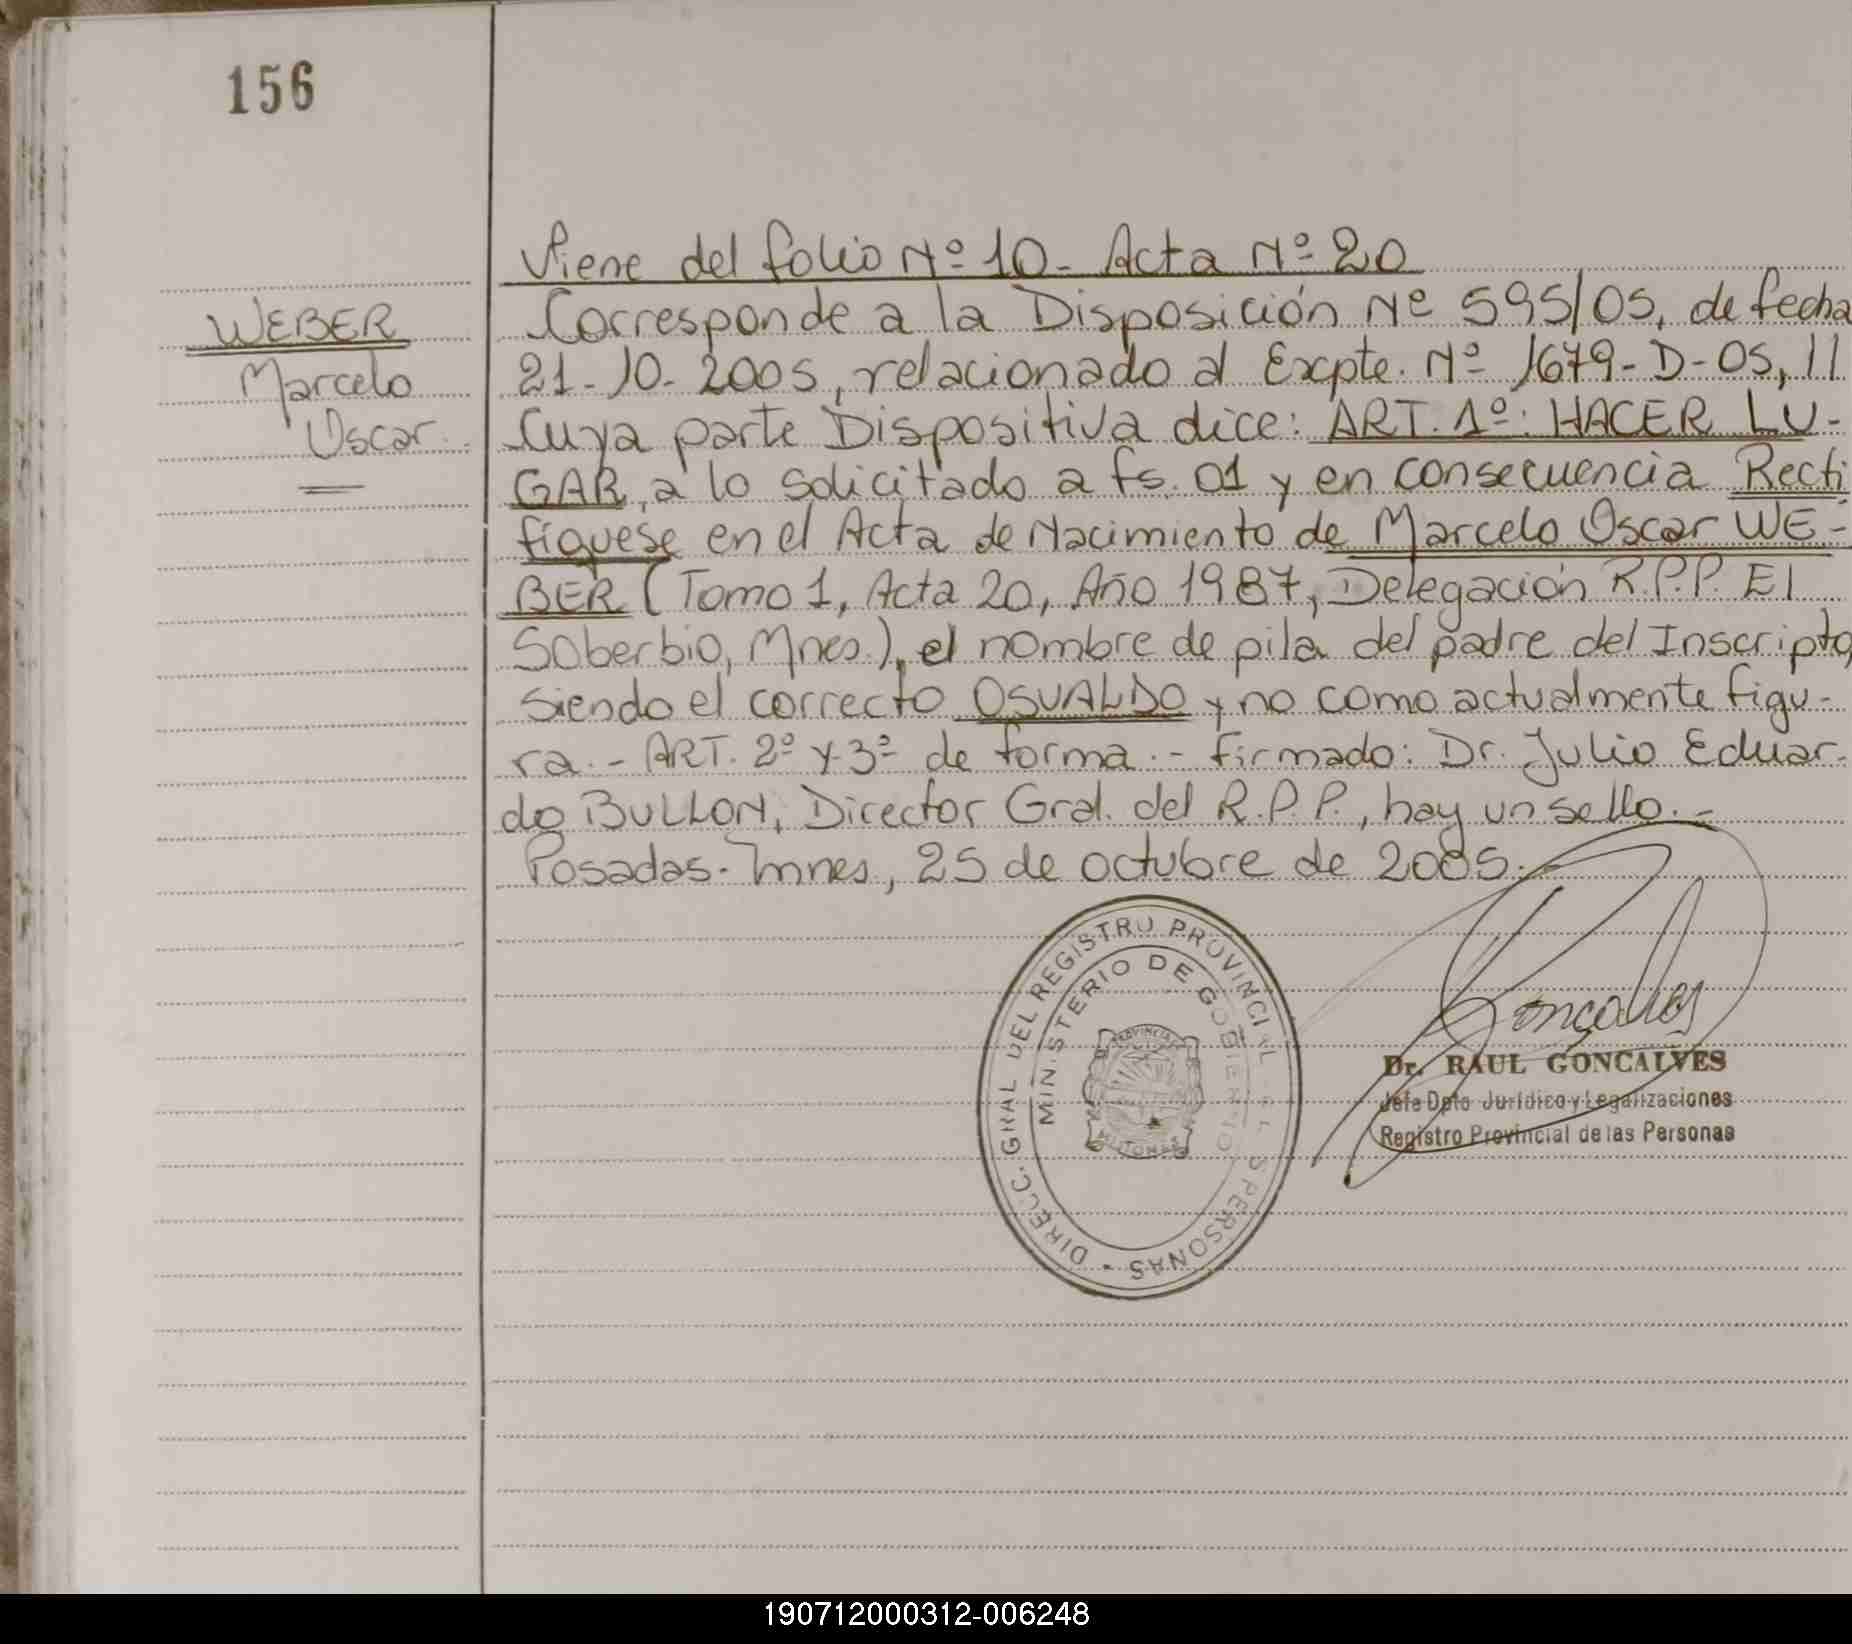 156
WEBER
Marcelo
Oscar
Viene del folio Nº 10 - Acta Nº 20
Corresponde a la Disposición Nº 595/05, de fecha
21-10-2005, relacionado al Excpte. Nº 1679-D-05, //
Cuya parte Dispositiva dice: ART. 1º: HACER LU-
GAR, a lo solicitado a fs. 01 y en consecuencia Recti
fíquese en el Acta de Nacimiento de Marcelo Oscar WE-
BER (Tomo 1, Acta 20, Año 1987, Delegación R.P.P. El
Soberbio, Mnes.), el nombre de pila del padre del Inscripto,
siendo el correcto OSVALDO y no como actualmente figu-
ra.- ART. 2º y 3º de forma.- Firmado: Dr. Julio Eduar-
do BULLON, Director Gral. del R.P.P., hay un sello.-
Posadas-Mnes, 25 de octubre de 2005.-
DIRECC. GRAL DEL REGISTRO PROVINCIAL PERSONAS
MINISTERIO DE GOBIERNO
PROVINCIA
MISIONES
Goncalves
Dr. RAUL GONCALVES
Jefe Dpto Jurídico y Legalizaciones
Registro Provincial de las Personas
190712000312-006248